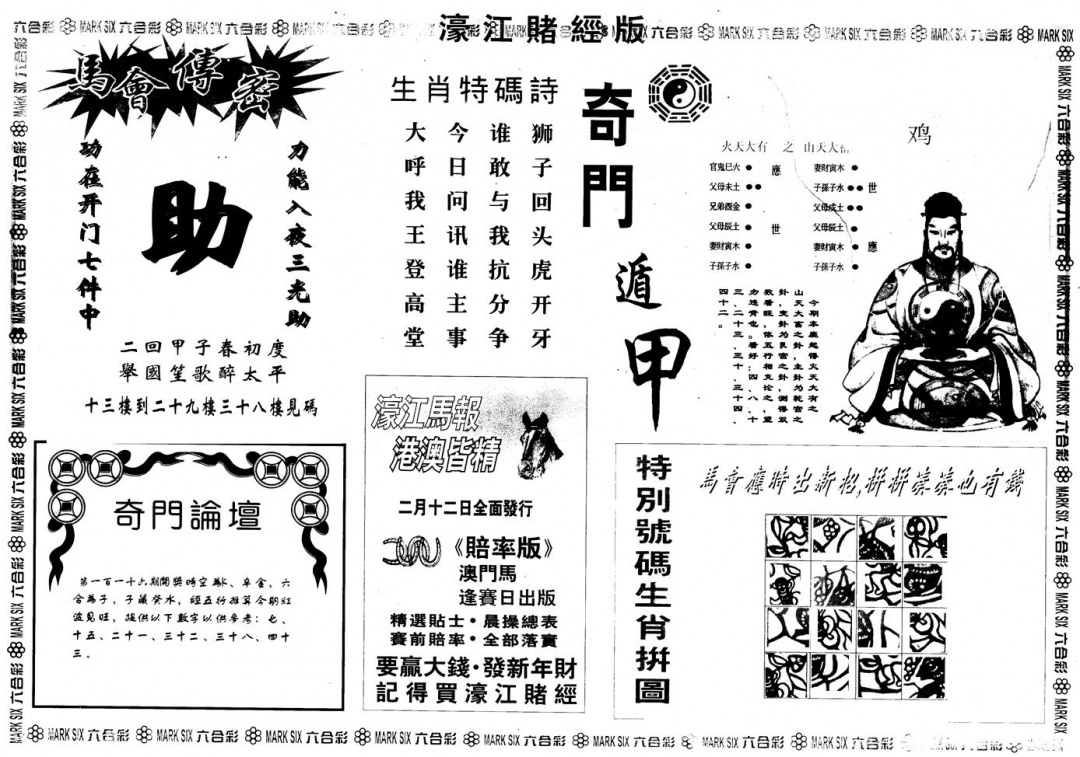 濠江賭經版
六合彩 MARK SIX 六合彩 MARK SIX 六合彩 MARK SIX
馬會傳密
力能入夜三光助
助
功在开门七件中
二回甲子春初度
舉國笙歌醉太平
十三樓到二十九樓三十八樓見碼
生肖特碼詩
狮子回头虎开牙
谁敢与我抗分争
今日问讯谁主事
大呼我王登高堂
奇門遁甲
鸡
火天大有 之 山天大
官鬼巳火 應 妻財寅木
父母未土 子孫子水 世
兄弟酉金 父母戌土
父母辰土 世 父母辰土
妻財寅木 妻財寅木 應
子孫子水 子孫子水
今期本座起得火天大有之
山天大富之卦，主卦为乾宫之
卦，变卦为艮宫之卦，测得双
数看旺，依五行相克论之，望
勿造肯也。看好：四、八、十
三、二十三、三十三、三十四、
四十二。
濠江馬報
港澳皆精
二月十二日全面發行
《賠率版》
澳門馬
逢賽日出版
精選貼士·晨操總表
賽前賠率·全部落實
要贏大錢·發新年財
記得買濠江賭經
奇門論壇
第一百一十六期開獎時空
合為子，子藏癸水，經五行推算今期紅
波見旺，提供以下數字以供參考：七、
十五、二十一、三十二、三十八、四十
三。
特別號碼生肖拼圖
馬會應時出新招，拼拼湊湊也有鐵
MARK SIX 六合彩 MARK SIX 六合彩 MARK SIX 六合彩